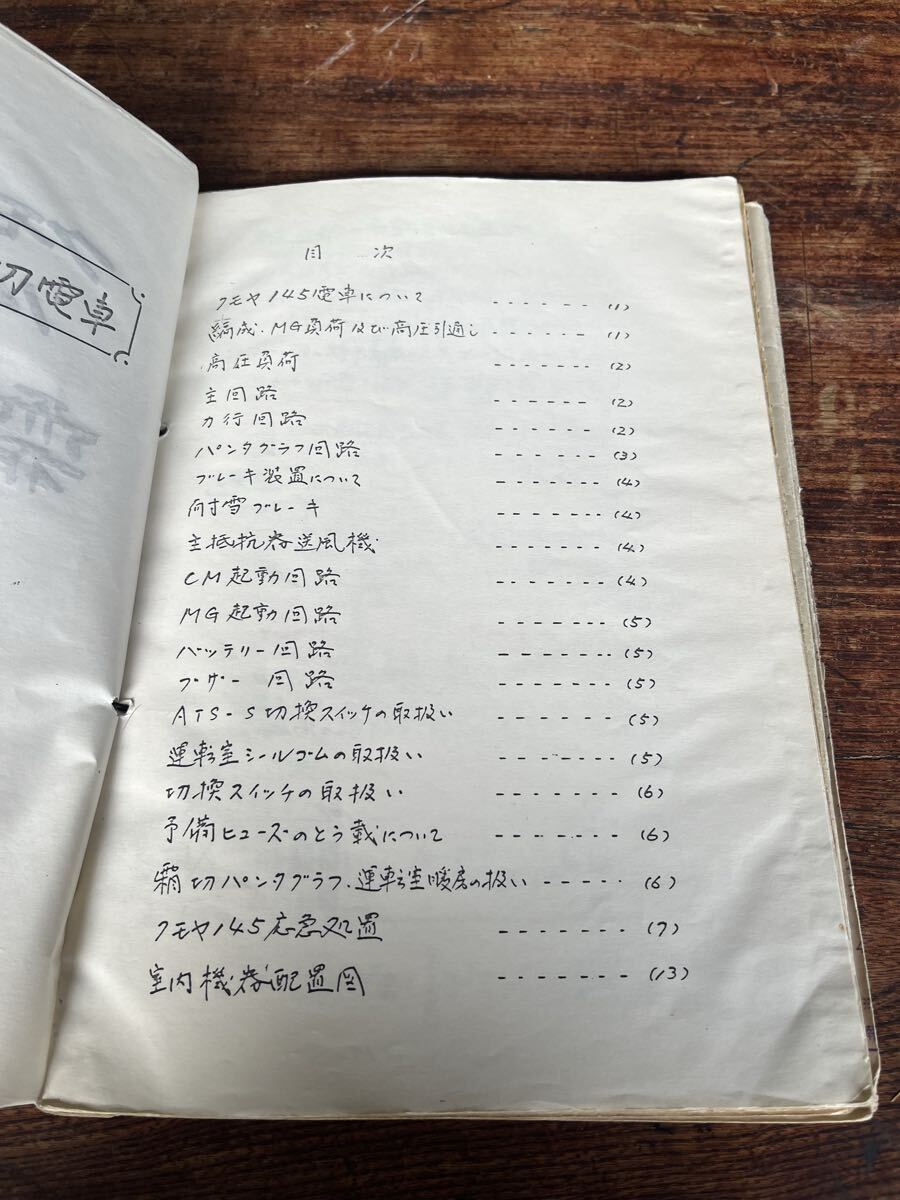 切電車
目 次
クモヤ145電車について ------ (1)
編成、MG負荷及び高圧引通し ------ (1)
高圧負荷 ------ (2)
主回路 ------ (2)
力行回路 ------ (2)
パンタグラフ回路 ------ (3)
ブレーキ装置について ------- (4)
耐雪ブレーキ ------- (4)
主抵抗器送風機 ------- (4)
CM起動回路 ------- (4)
MG起動回路 ------- (5)
バッテリー回路 ------- (5)
ブザー 回路 ------- (5)
ATS-S切換スイッチの取扱い ------- (5)
運転室シールゴムの取扱い ------- (5)
切換スイッチの取扱い ------- (6)
予備ヒューズのとう載について ------- (6)
霜切パンタグラフ、運転室暖房の扱い ----- (6)
クモヤ145応急処置 ------- (7)
室内機器配置図 ------- (13)